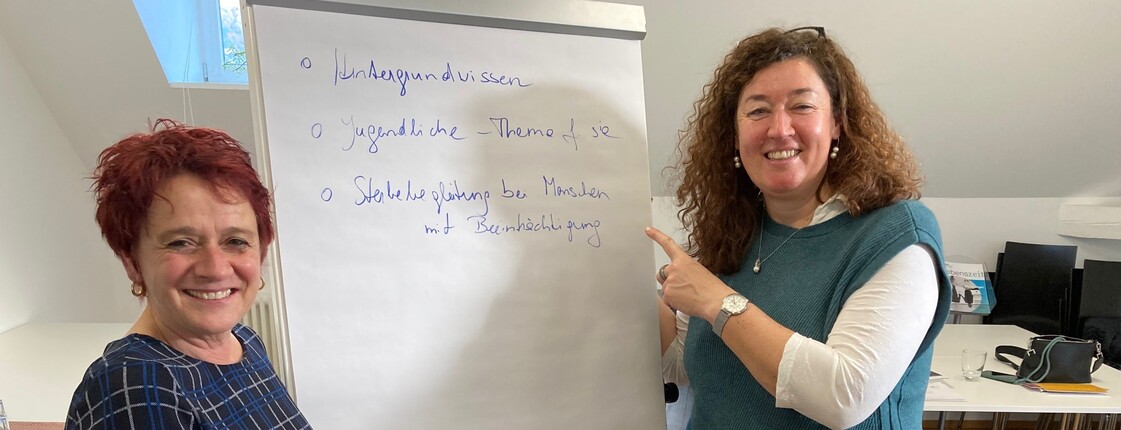 o Hintergrundwissen
o Jugendliche - Thema f. sie
o Sterbebegleitung bei Menschen
mit Beeinträchtigung
benszeit